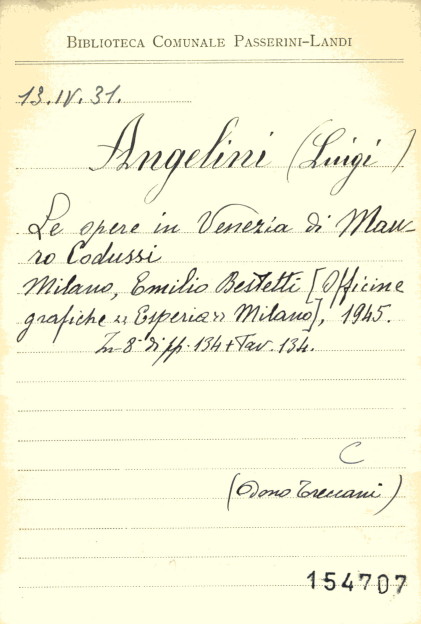 BIBLIOTECA COMUNALE PASSERINI-LANDI
13.IV.31.
Angelini (Luigi)
Le opere in Venezia di Mau-
ro Codussi
Milano, Emilio Bestetti [Officine
grafiche "Esperia" Milano], 1945.
In 8° di pp. 134 + Tav. 134.
C
(Dono Treccani)
154707